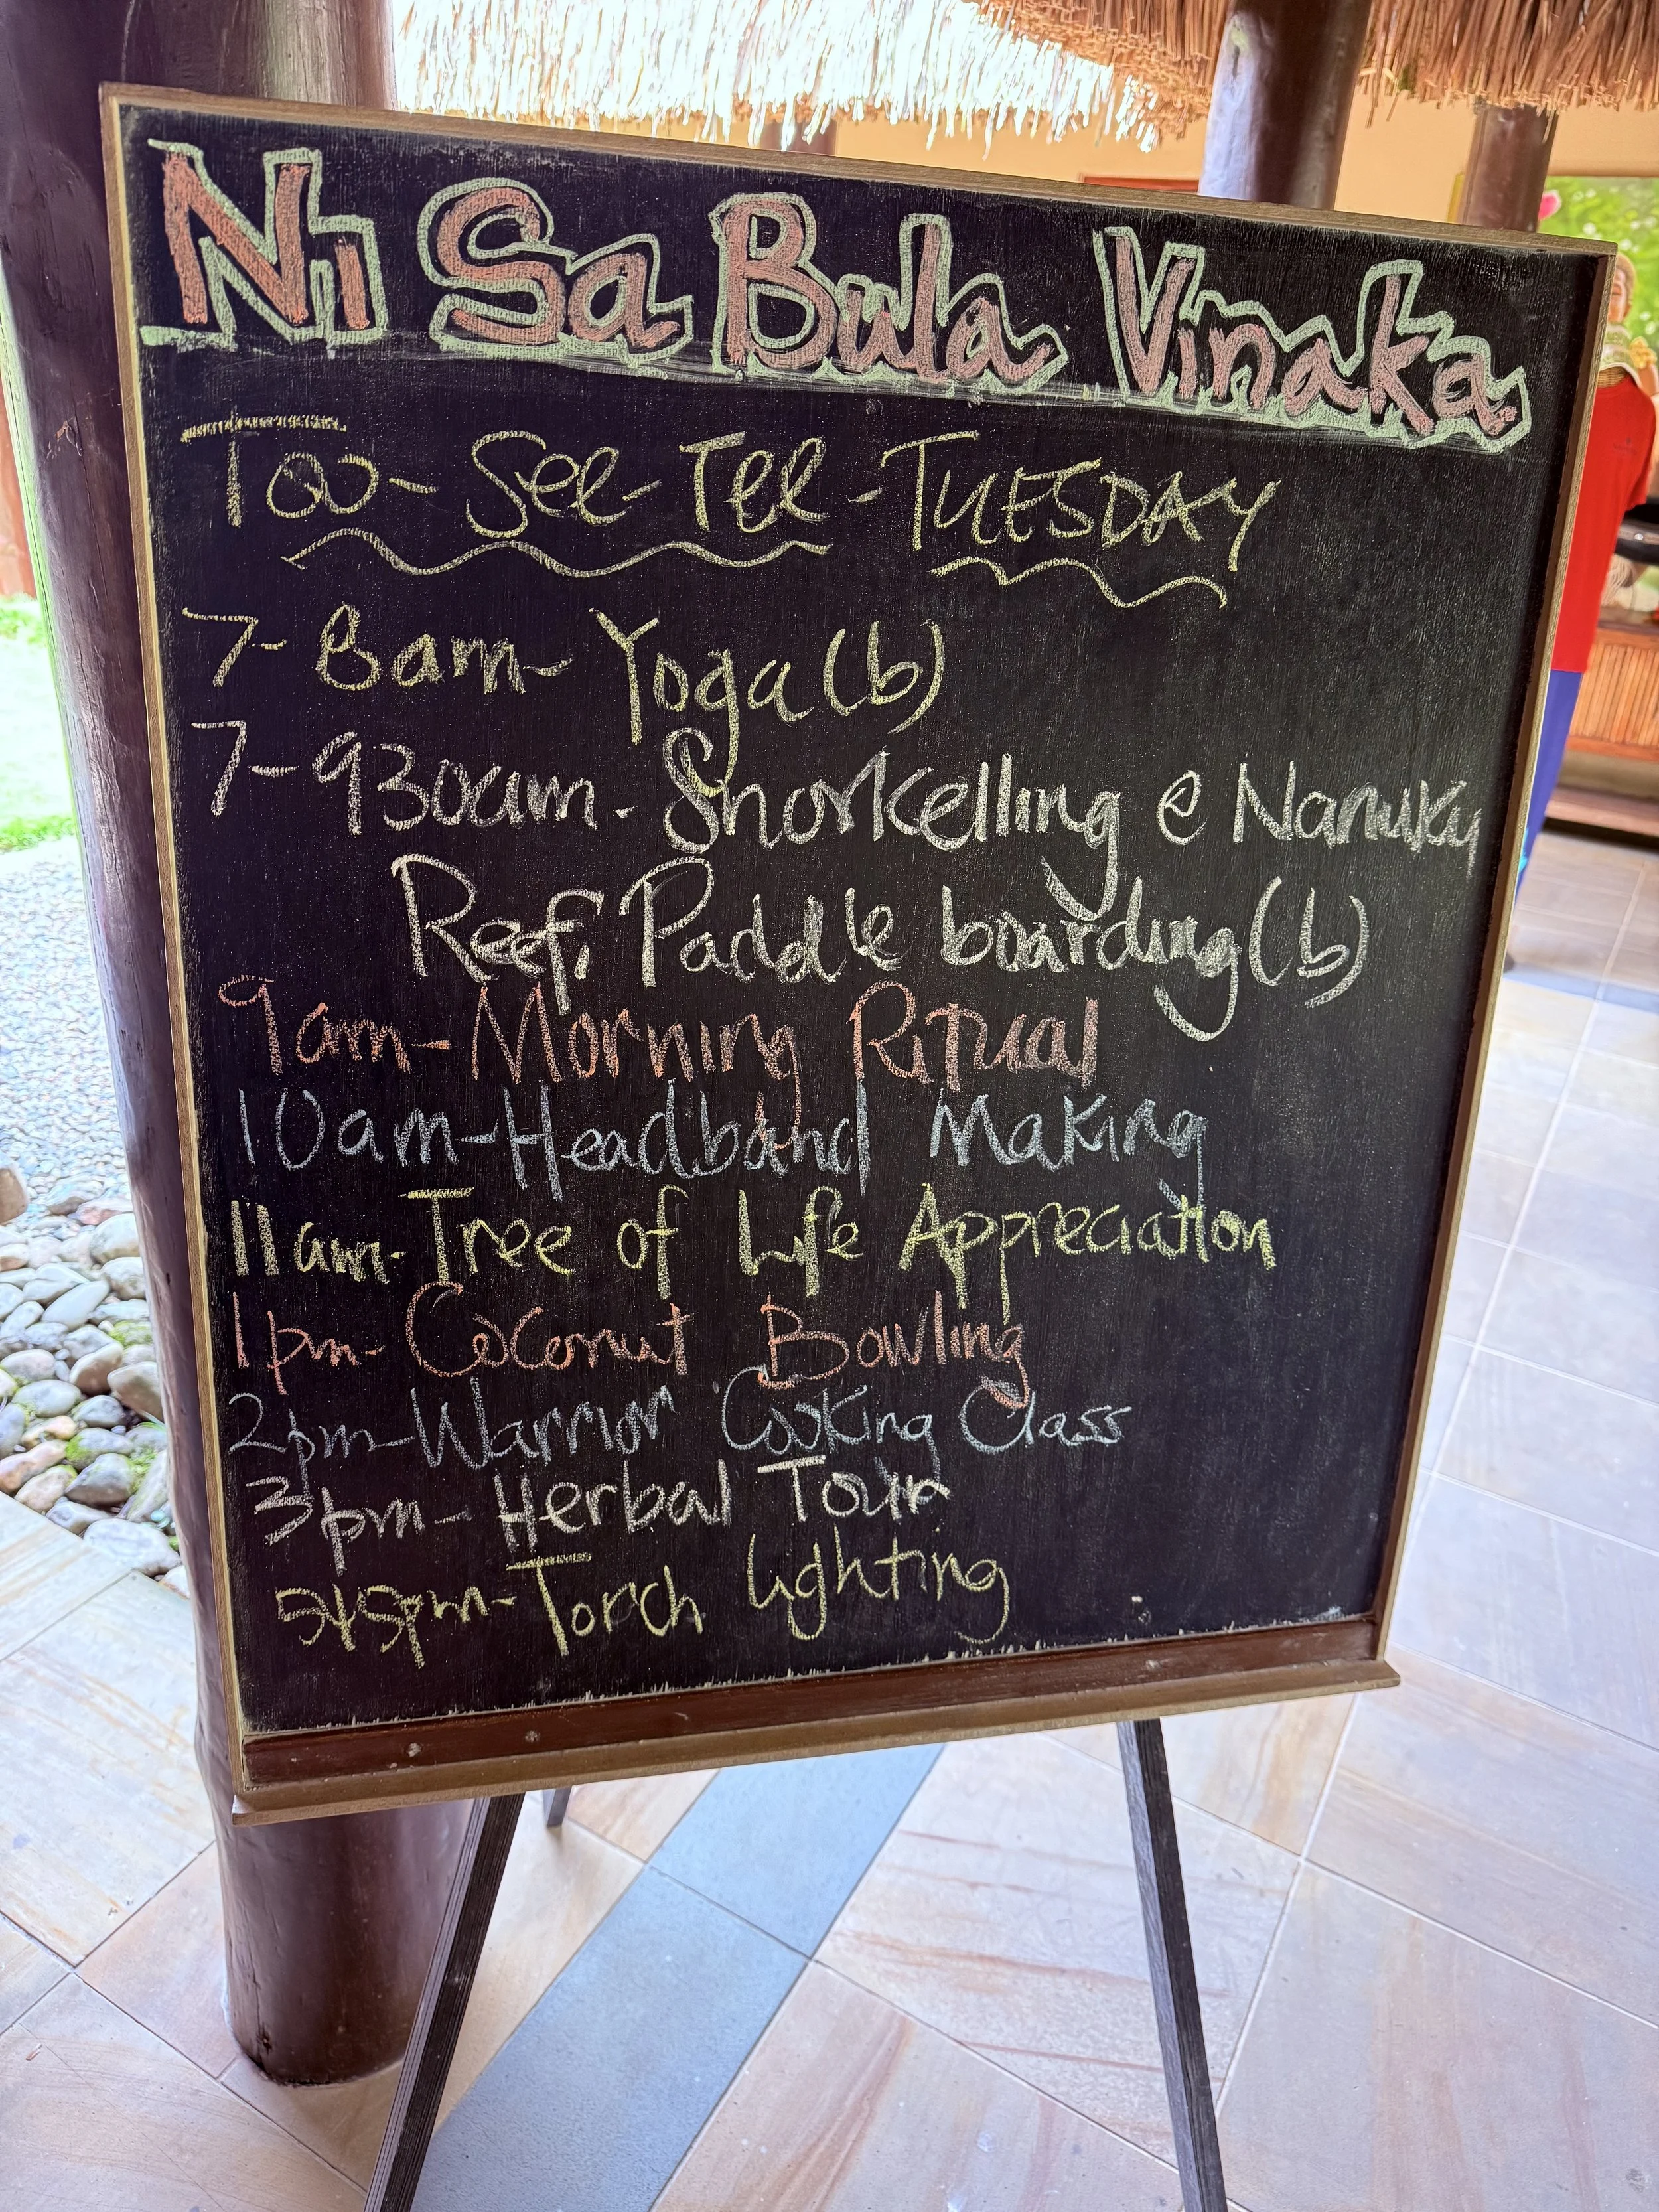 Ni Sa Bula Vinaka
Too-See-Tee-TUESDAY
7-8am-Yoga(b)
7-930am-Snorkelling @ Nanuku
Reef, Paddle boarding(b)
9am-Morning Ritual
10am-Headband Making
11am-Tree of Life Appreciation
1pm-Coconut Bowling
2pm-Warrior Cooking Class
3pm-Herbal Tour
545pm-Torch Lighting